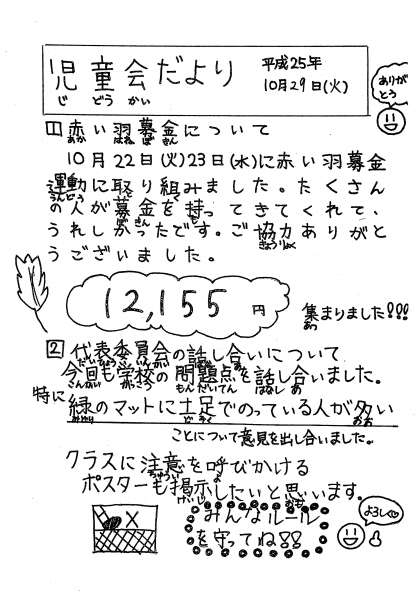 児童会だより
じ どう かい
平成25年
10月29日(火)
ありがとう
1 赤い羽募金について
あか はね ぼ きん
10月22日(火)23日(水)に赤い羽募金
運動に取り組みました。たくさん
うんどう と く
の人が募金を持ってきてくれて、
ぼ きん も
うれしかったです。ご協力ありがと
きょうりょく
うございました。
12,155円
集まりました!!!
あつ
2 代表委員会の話し合いについて
だいひょういいんかい
今回も学校の問題点を話し合いました。
こんかい がっこう もんだいてん はな あ
特に緑のマットに土足でのっている人が多い
みどり ど そく おお
ことについて意見を出し合いました。
クラスに注意を呼びかける
ちゅうい よ
ポスターも掲示したいと思います。
けいじ おも
みんなルール
を守ってね!!
よろしく